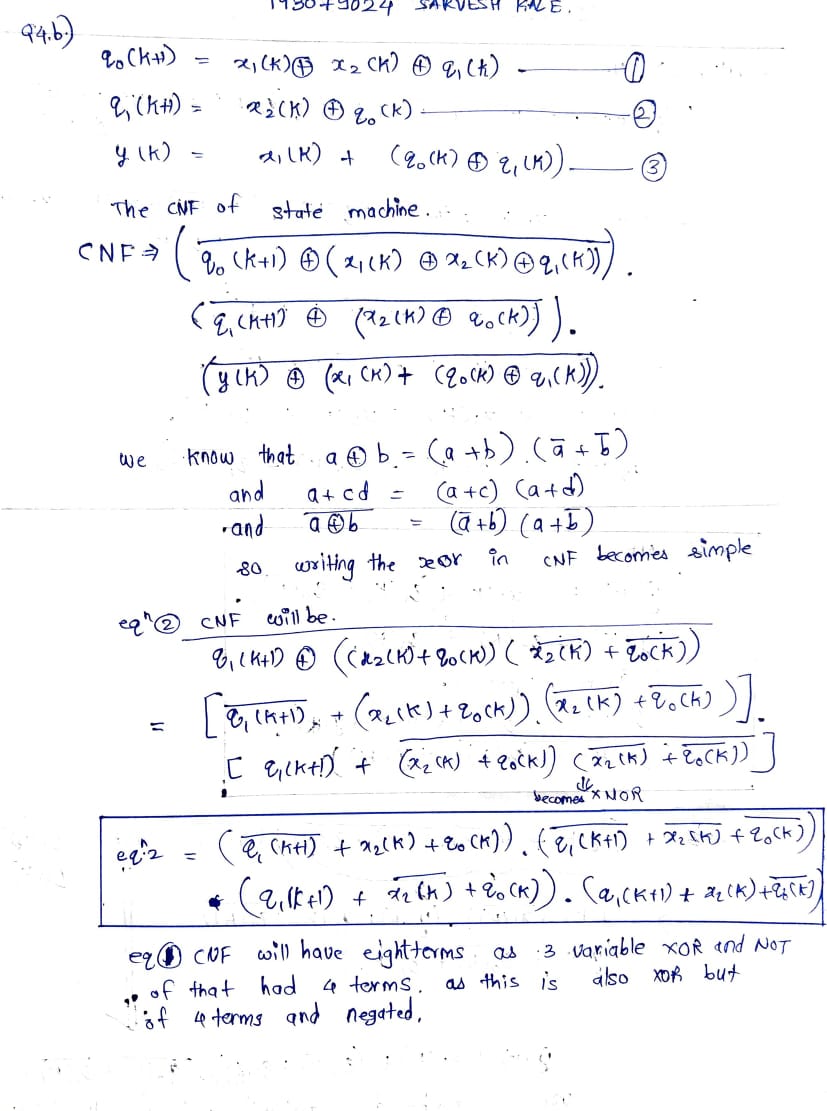 193079024 SARVESH KALE.
Q4.b.)
q₀(k+1) = x₁(k) ⊕ x₂(k) ⊕ q₁(k) ——— ①
q₁(k+1) = x₂(k) ⊕ q₀(k) ——— ②
y(k) = x₁(k) + (q₀(k) ⊕ q₁(k)) ——— ③
The CNF of state machine.
CNF ⇒ ( \overline{q₀(k+1) ⊕ (x₁(k) ⊕ x₂(k) ⊕ q₁(k))} ) .
( \overline{q₁(k+1) ⊕ (x₂(k) ⊕ q₀(k))} ) .
( \overline{y(k) ⊕ (x₁(k) + (q₀(k) ⊕ q₁(k)))} ).
we know that a ⊕ b = (a + b) . (ā + b̄)
and a + cd = (a+c) (a+d)
and \overline{a ⊕ b} = (ā + b) (a + b̄)
so writing the xor in CNF becomes simple
eqⁿ ② CNF will be.
\overline{q₁(k+1) ⊕ ((x₂(k) + q₀(k)) ( \overline{x₂(k)} + \overline{q₀(k)}))}
= [ \overline{q₁(k+1)} + (x₂(k) + q₀(k)) . ( \overline{x₂(k)} + \overline{q₀(k)} ) ] .
[ q₁(k+1) + \overline{(x₂(k) + q₀(k)) ( \overline{x₂(k)} + \overline{q₀(k)})} ]
⇓
becomes XNOR
eqⁿ2 = ( \overline{q₁(k+1)} + x₂(k) + q₀(k)) . ( \overline{q₁(k+1)} + \overline{x₂(k)} + \overline{q₀(k)})
• (q₁(k+1) + \overline{x₂(k)} + q₀(k)) . (q₁(k+1) + x₂(k) + \overline{q₀(k)})
eq ① CNF will have eight terms as 3 variable XOR and NOT
of that had 4 terms. as this is also XOR but
of 4 terms and negated.